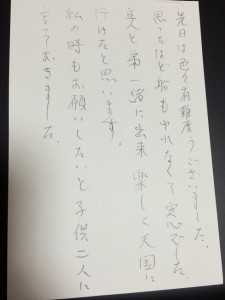 先日は色々有難度うございました。
思ったほど船もゆれなくて安心でした
主人と第一緒に出来 楽しく天国に
行けたと思います。
私の時もお願いしたいと子供二人に
言っておきました。